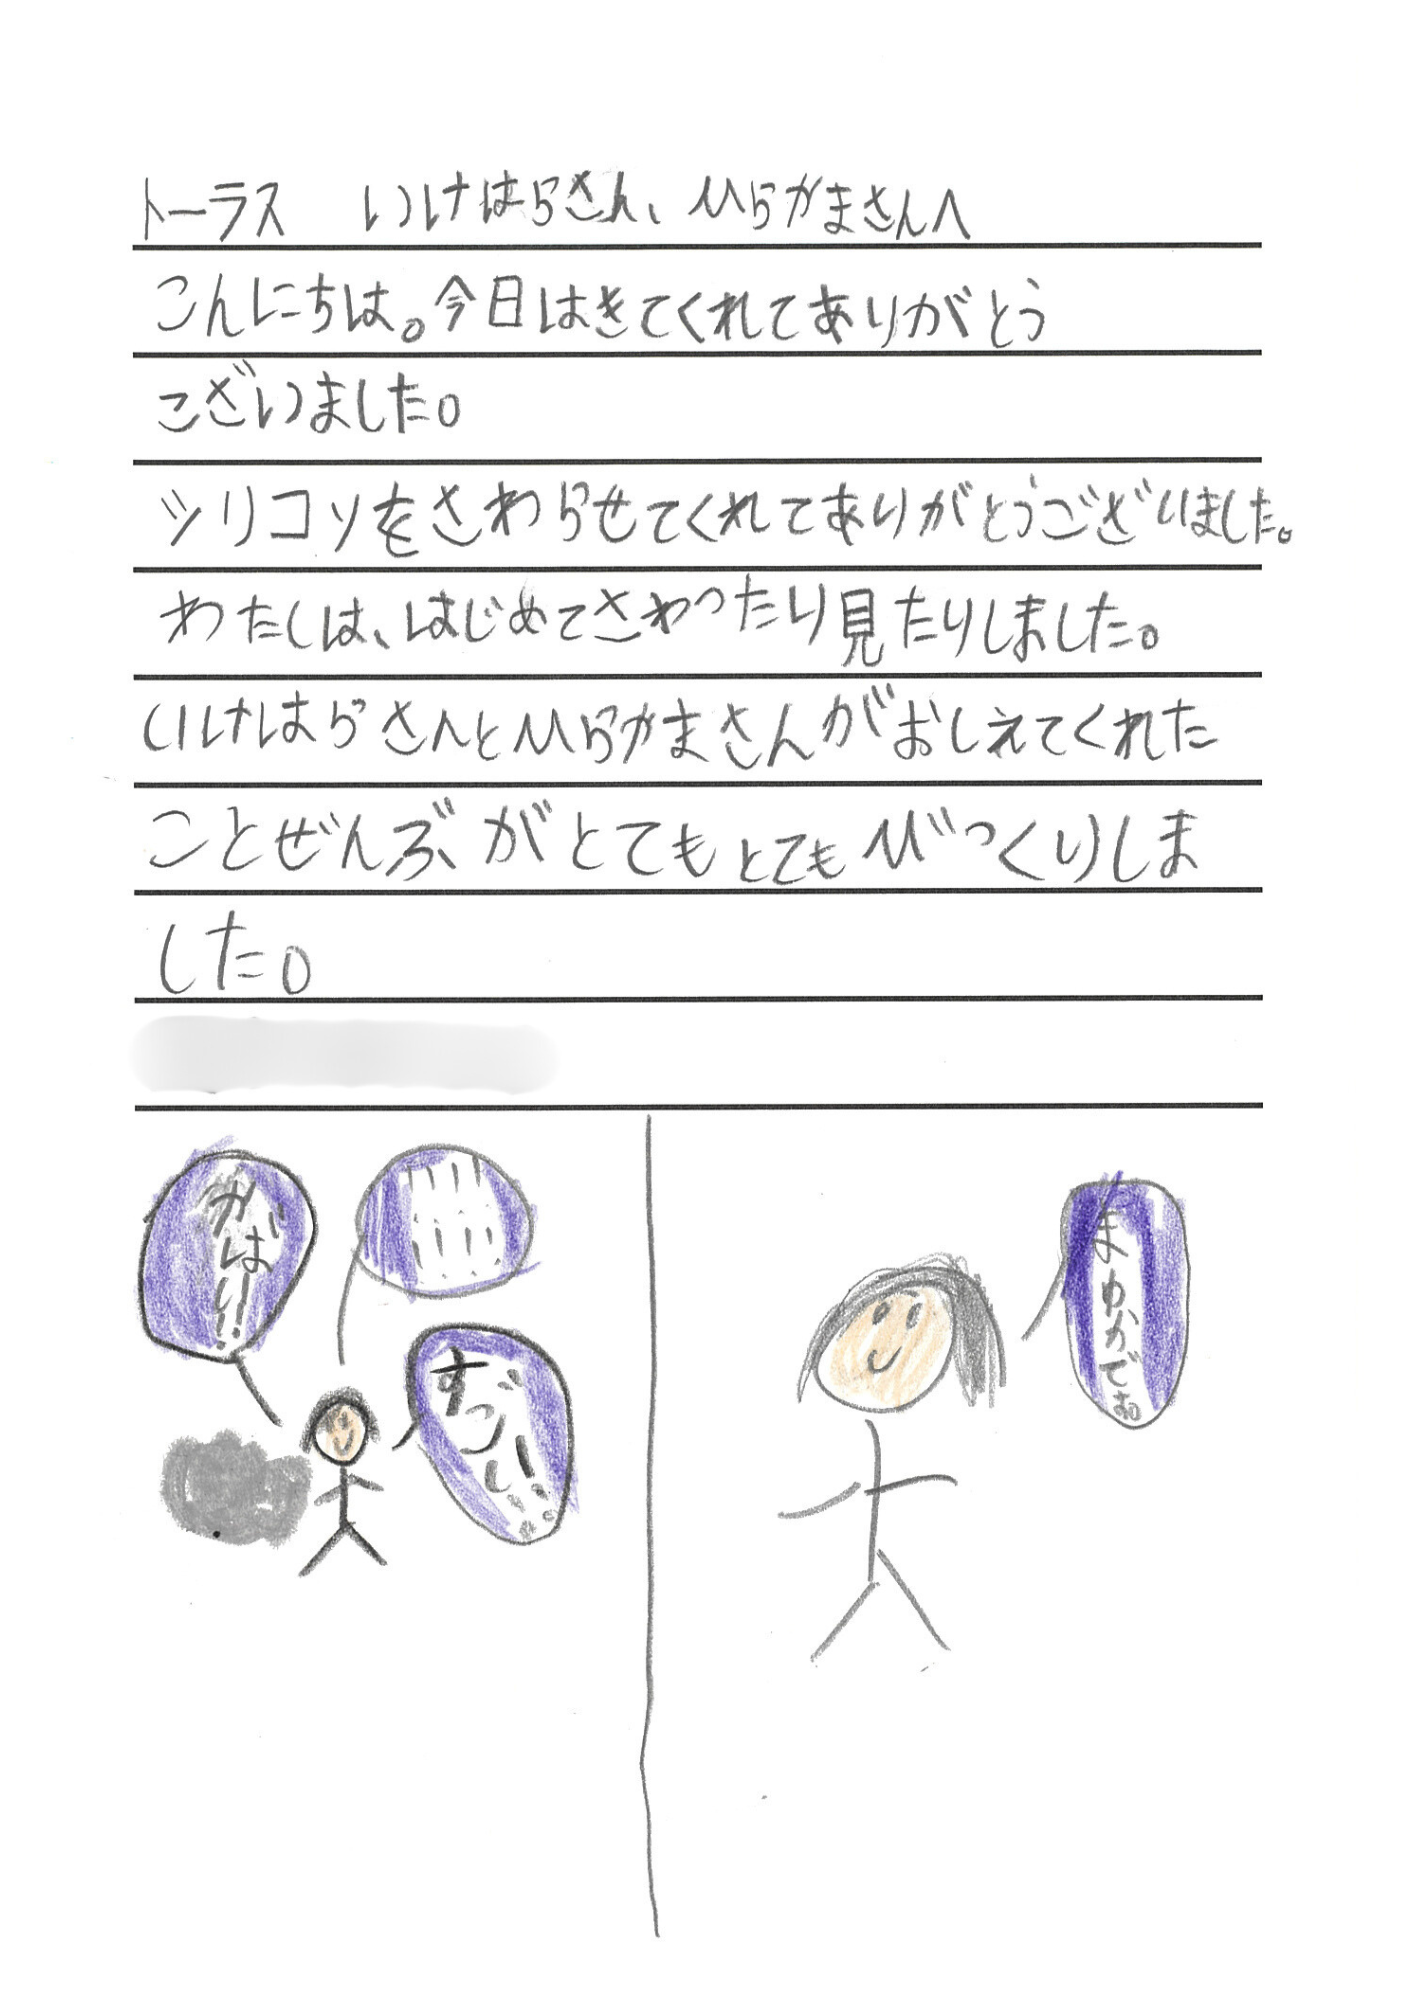 トーラス　いけはらさん、ひらかまさんへ
こんにちは。今日はきてくれてありがとう
ございました。
ツリコソをさわらせてくれてありがとうございました。
わたしは、はじめてさわったり見たりしました。
いけはらさんとひらかまさんがおしえてくれた
ことぜんぶがとてもとてもびっくりしま
した。